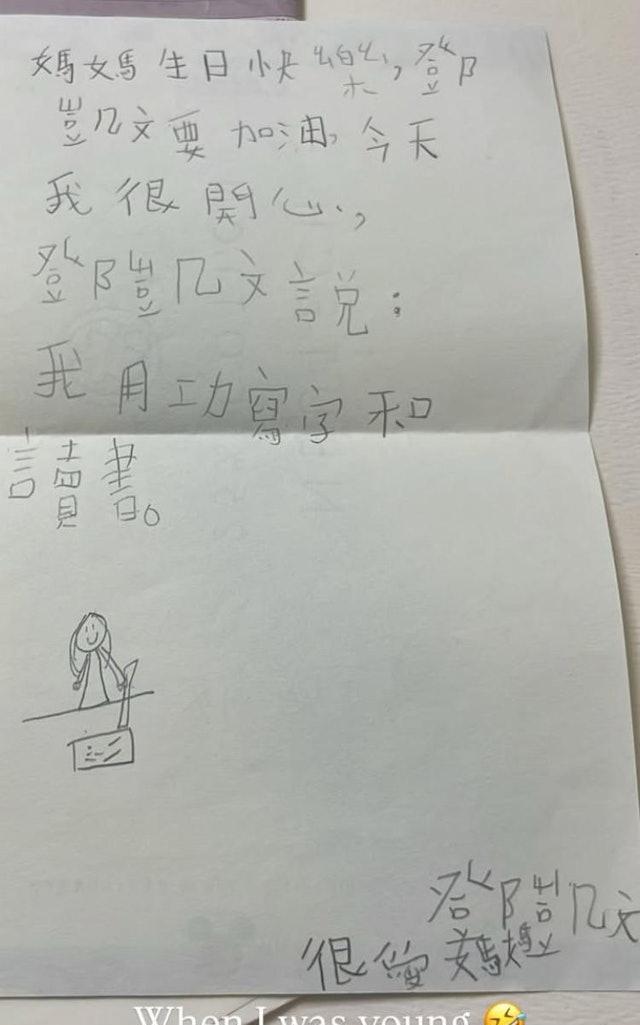 媽媽生日快樂,鄧
凱文要加油,今天
我很開心,
鄧凱文說:
我用功寫字和
讀書。
鄧凱文
很愛媽媽
When I was young 🤣